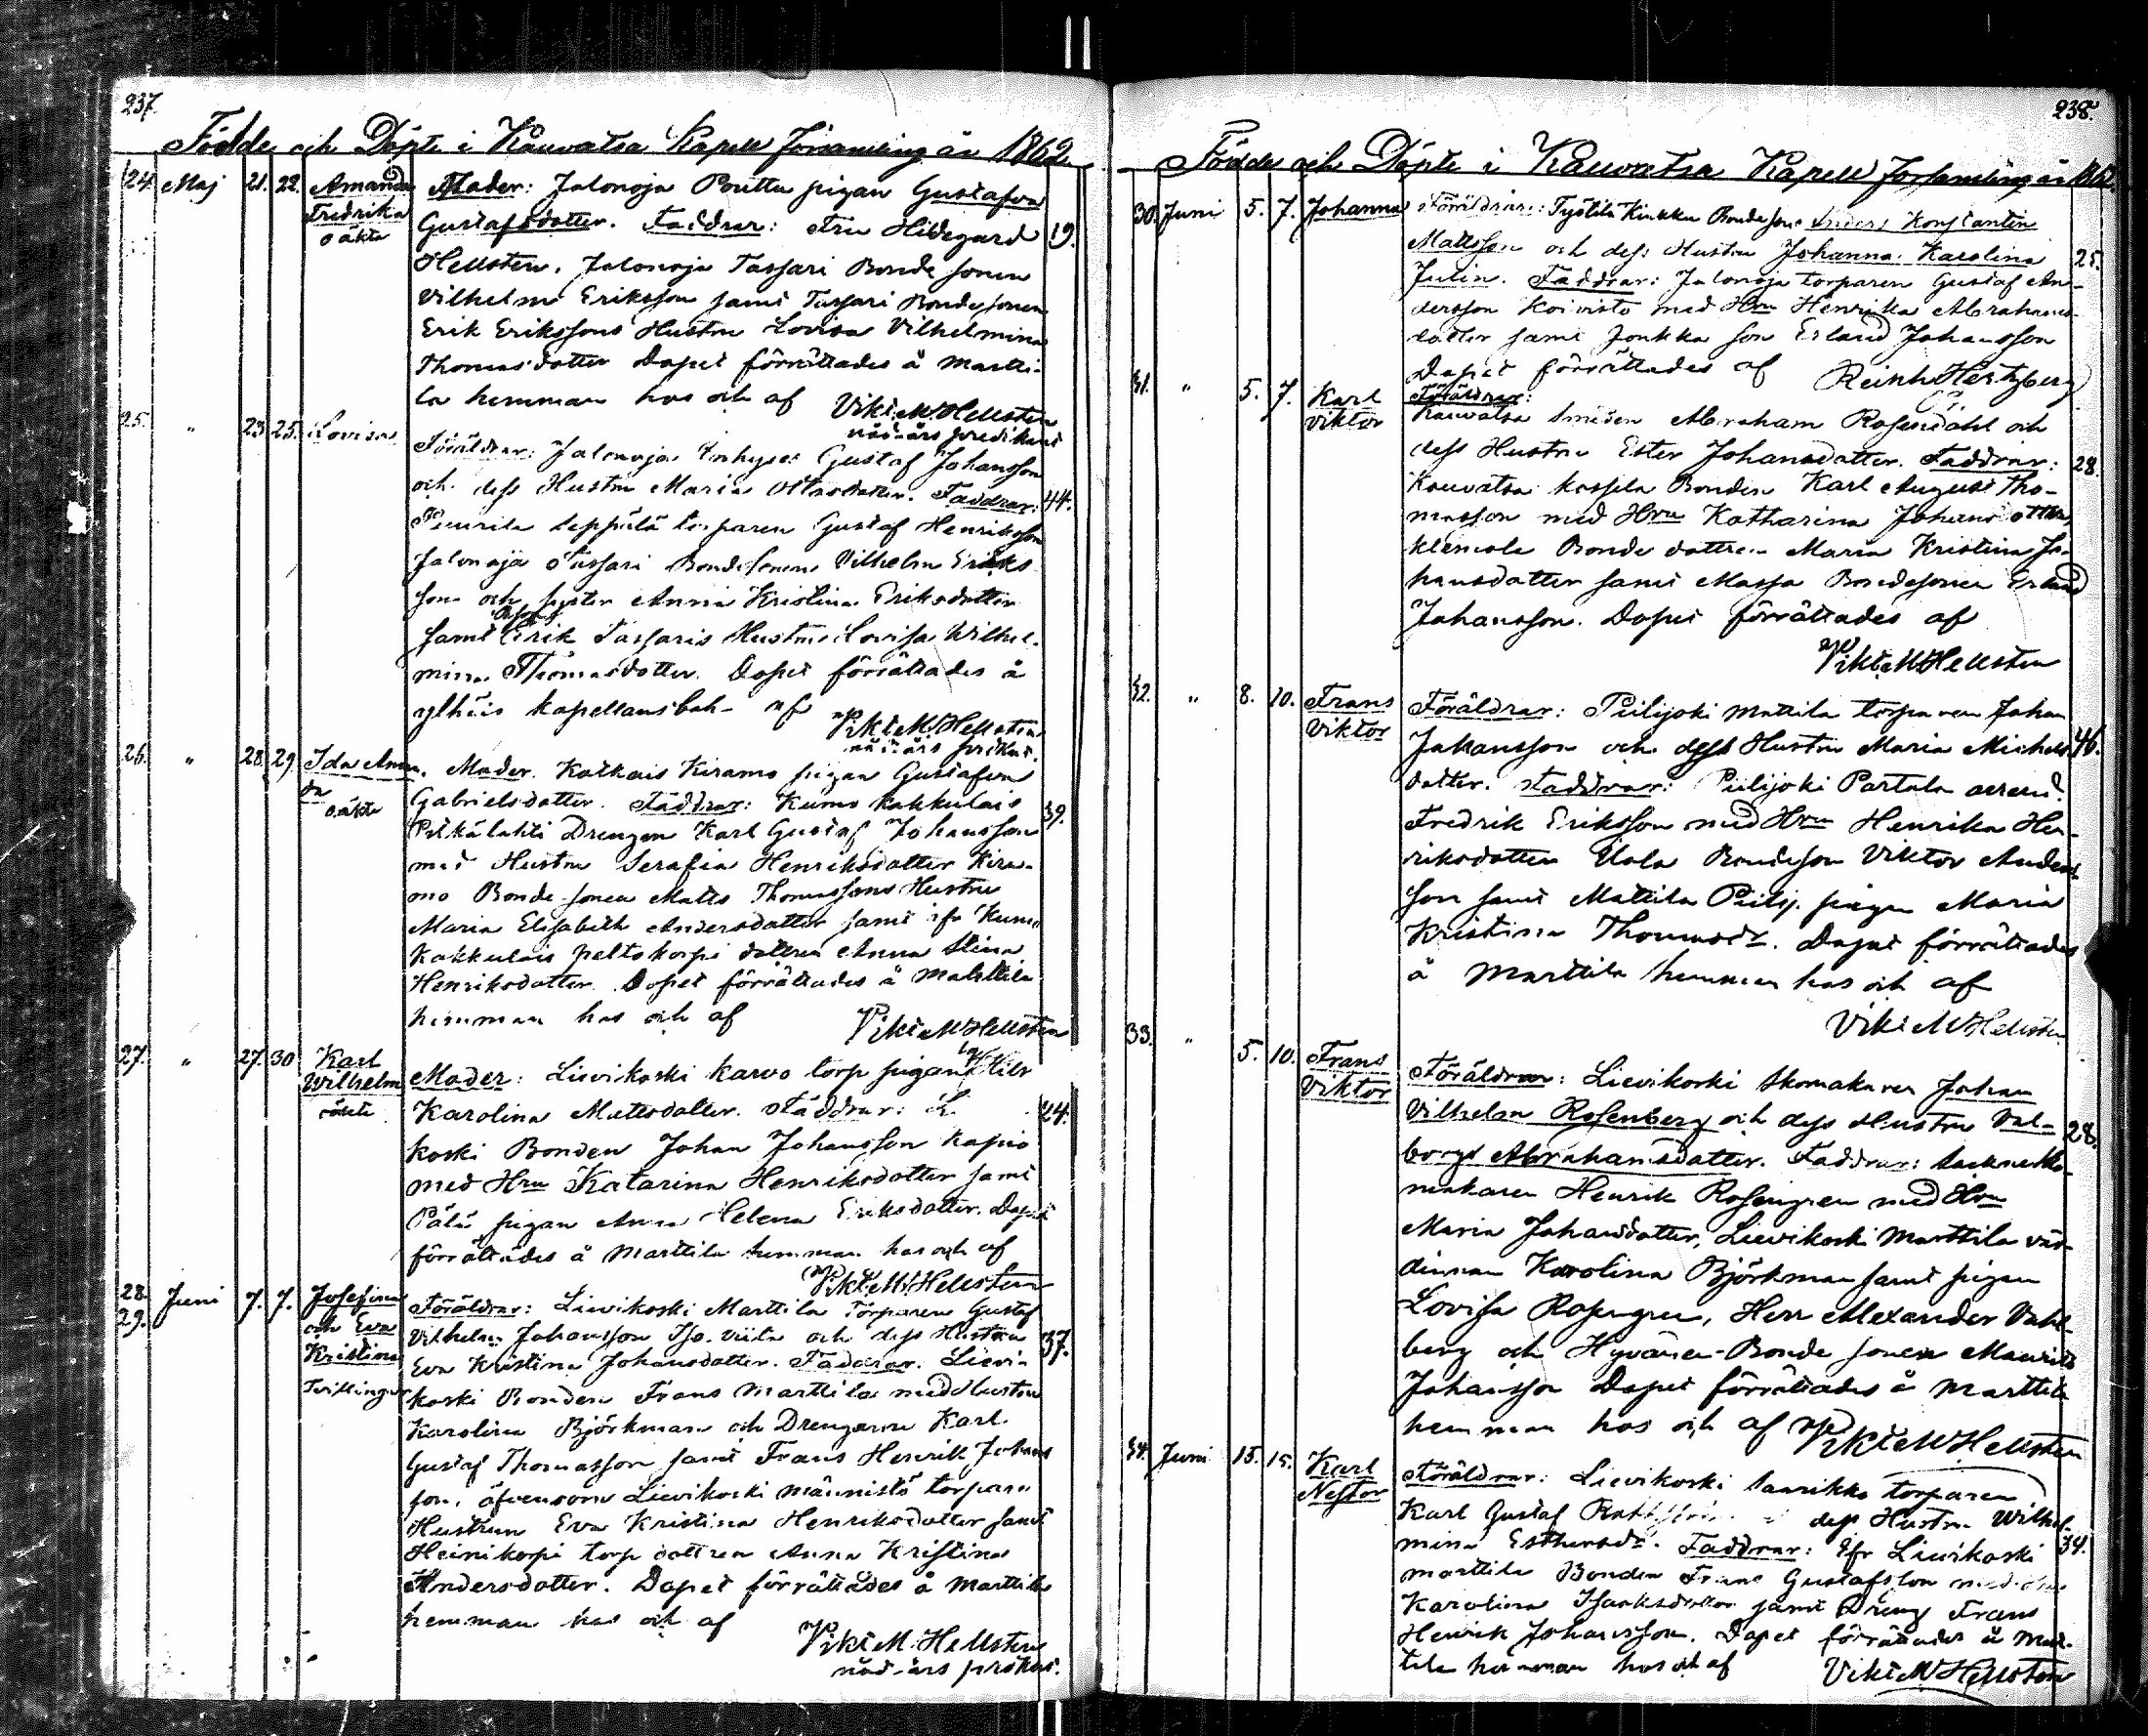 237.
Födde och Döpte i Kauvatsa Kapell Församling år 1862
24. Maj 21. 22. Amanda Fredrika oäkta
Moder: Jalonoja Punttu pigan Gustafva
Gustafsdotter. Faddrar: Fru Hildegard 19.
Hellsten, Jalonoja Tassari Bonde sonen
Vilhelm Eriksson samt Tassari Bondesonen
Erik Erikssons Hustru Lovisa Vilhelmina
Thomasdotter Dopet förrättades å Martti-
la hemman hos och af Vikt. M. Hellsten
nåd-års predikant
25. " 23. 25. Lovisa
Föräldrar: Jalonoja Inhyses Gustaf Johansson
och dess Hustru Maria Ottosdotter. Faddrar: 44.
Seppälä torparen Gustaf Henriksson
Jalonoja Tassari Bondesonen Vilhelm Eriks-
son och syster Anna Kristina Eriksdotter
samt Erik Tassaris Hustru Lovisa Wilhel-
mina Thomasdotter. Dopet förrättades å
Ylhäis kapellansbol af Vikt. M. Hellsten
nåd-års prdknt.
26. " 28. 29. Ida Aman-
da oäkta
Moder. Katkais Kiramo pigan Gustafva
Gabrielsdotter. Faddrar: Kumo Kakkulais 39.
Pitkälahti Drengen Karl Gustaf Johansson
med Hustru Serafia Henriksdotter Kira-
mo Bonde-sonen Matts Thomassons Hustru
Maria Elisabeth Andersdotter samt ifr Kumo
Kakkulais peltokorpi dottren Anna Stina
Henriksdotter. Dopet förrättades å Marttila
hemman hos och af Vikt. M. Hellsten
27. " 27. 30 Karl Wilhelm oäkta
Moder: Lievikoski karvo torp pigan
Karolina Mattsdotter. Faddrar: 24.
koski Bonden Johan Johansson Kapio
med Hru Katarina Henriksdotter samt
Pälä pigan Anna Helena Eriksdotter. Dopet
förrättades å Marttila hemman hos och af
Vikt. M. Hellsten
28. 29. Juni 7. 7. Josefina och Eva Kristina Tvillingar
Föräldrar: Lievikoski Marttila Torparen Gustaf
Vilhelm Johansson Iso-viita och dess Hustru 37.
Eva Kristina Johansdotter. Faddrar. Lievi-
koski Bonden Frans Marttila med Hustru
Karolina Björkman och Drengarne Karl
Gustaf Thomasson samt Frans Henrik Johans
son, äfvensom Lievikoski männistö torpare
Hustrun Eva Kristina Henriksdotter samt
Heinikorpi torp dottren Anna Kristina
Andersdotter. Dopet förrättades å Marttila
hemman hos och af
Vikt. M. Hellsten
nåd-års prdknt.
238.
Födde och Döpte i Kauvatsa Kapell Församling år 1862.
30. Juni 5. 7. Johanna
Föräldrar: Työtilä Kiukku Bondeson Anders Konstantin
Mattsson och dess Hustru Johanna Karolina 25.
Julin. Faddrar: Jalonoja torparen Gustaf An-
dersson Koivisto med Hru Henrika Abrahams-
dotter samt Jonkka son Erland Johansson
Dopet förrättades af Reinh Hertzberg
31. " 5. 7. Karl Viktor
Föräldrar:
Kauvatsa Smeden Abraham Rosendahl och
dess Hustru Ester Johansdotter. Faddrar: 28.
Kauvatsa Bonden Karl August Tho-
masson med Hru Katharina Johansdotter,
Klemola Bonde dottren Maria Kristina Jo-
hansdotter samt Massa Bondesonen Erland
Johansson. Dopet förrättades af
Vikt. M. Hellsten
32. " 8. 10. Frans Viktor
Föräldrar: Piilijoki Mattila torparen Johan
Johansson och dess Hustru Maria Michels- 46.
dotter. Faddrar: Piilijoki Partala arrend.
Fredrik Eriksson med Hru Henrika Hen-
riksdotter Uola Bondeson Viktor Anders-
son samt Mattila Piilij. pigan Maria
Kristina Thomasdr. Dopet förrättades
å Marttila hemman hos och af
Vikt. M. Hellsten
33. " 5. 10. Frans Viktor
Föräldrar: Lievikoski Skomakaren Johan
Vilhelm Rosenberg och dess Hustru Val- 28.
borgt Abrahamsdotter. Faddrar:
makaren Henrik Rosengren med Hru
Maria Johansdotter, Lievikoski Marttila vär-
dinnan Karolina Björkman samt pigan
Lovisa Rosengren, Herr Alexander Vahl-
berg och Hyvänen-Bonde sonen Maurits
Johansson Dopet förrättades å Marttila
hemman hos och af Vikt. M. Hellsten
34. Juni 15. 15. Karl Nestor
Föräldrar: Lievikoski Saarikko torparen
Karl Gustaf dess Hustru Wilhel-
mina Esthersdr. Faddrar: Ifr Lievikoski 34.
Marttila Bonden Frans Gustafsson med
Karolina Isaksdotter samt Dreng Frans
Henrik Johansson. Dopet förrättades å Mart-
tila hemman hos och af Vikt. M. Hellsten